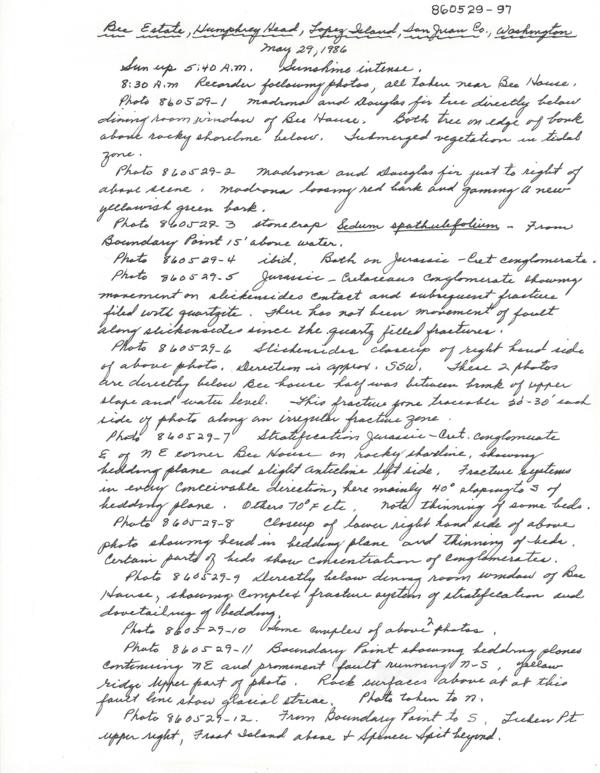 860529-97
Bee Estate, Humphrey Head, Lopez Island, San Juan Co., Washington
May 29, 1986
Sun up 5:40 A.M. Sunshine intense.
8:30 A.M Recorder following photos, all taken near Bee House.
Photo 860529-1 madrona and Douglas fir tree directly below
dining room window of Bee House. Both tree on edge of bank
above rocky shoreline below. Submerged vegetation in tidal
zone.
Photo 860529-2 Madrona and Douglas fir just to right of
above scene. Madrona loosing red bark and gaining a new
yellowish green bark.
Photo 860529-3 stonecrap Sedum spathulifolium - From
Boundary Point 15' above water.
Photo 860529-4 ibid. Both on Jurassic-Cret conglomerate.
Photo 860529-5 Jurassic-Cretaceous conglomerate showing
movement on slickensides contact and subsequent fracture
filed with quartzite. There has not been movement of fault
along slickensides since the quartz filled fractures.
Photo 860529-6 Slickensides closeup of right hand side
of above photo. Direction is approx. SSW. These 2 photos
are directly below Bee house half was between brink of upper
slope and water level. This fracture zone traceable 20-30' each
side of photo along an irregular fracture zone.
Photo 860529-7 Stratification Jurassic-Cret. conglomerate
E of NE corner Bee House on rocky shoreline, showing
bedding plane and slight anticline left side. Fracture systems
in every conceivable direction, here mainly 40° sloping to S of
bedding plane. Others 70° etc. Note thinning of some beds.
Photo 860529-8 Closeup of lower right hand side of above
photo showing bend in bedding plane and thinning of beds.
Certain parts of beds show concentration of conglomerates.
Photo 860529-9 Directly below dining room window of Bee
House, showing complex fracture system of stratification and
dovetailing of bedding.
Photo 860529-10 Same complex of above 2 photos.
Photo 860529-11 Boundary Point showing bedding planes
continuing NE and prominent fault running N-S, yellow
ridge upper part of photo. Rock surfaces above at at this
fault line show glacial striae. Photo taken to N.
Photo 860529-12. From Boundary Point to S, Lichen Pt
upper right, Frost Island above + Spencer Spit beyond.